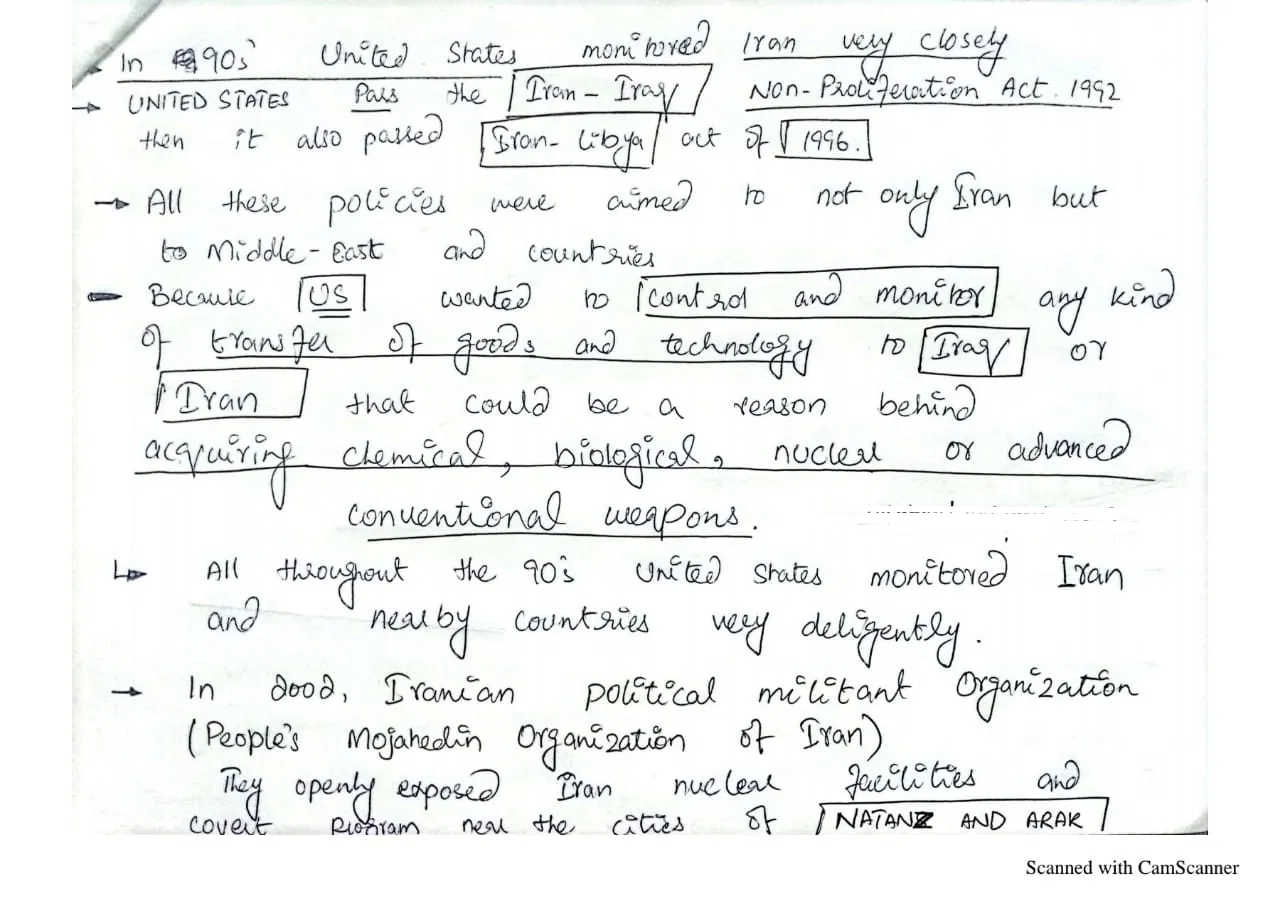 In 90's United States monitored Iran very closely
→ UNITED STATES Pass the Iran - Iraq Non-Proliferation Act. 1992
then it also passed Iran- libya act of 1996.
→ All these policies were aimed to not only Iran but
to Middle-East and countries
Because US wanted to control and monitor any kind
of transfer of goods and technology to Iraq or
Iran that could be a reason behind
acquiring chemical, biological, nuclear or advanced
conventional weapons.
↳ All throughout the 90's United States monitored Iran
and nearby countries very deligently.
→ In 2002, Iranian political militant Organization
(People's Mojahedin Organization of Iran)
They openly exposed Iran nuclear facilities and
covert program near the cities of NATANZ AND ARAK
Scanned with CamScanner